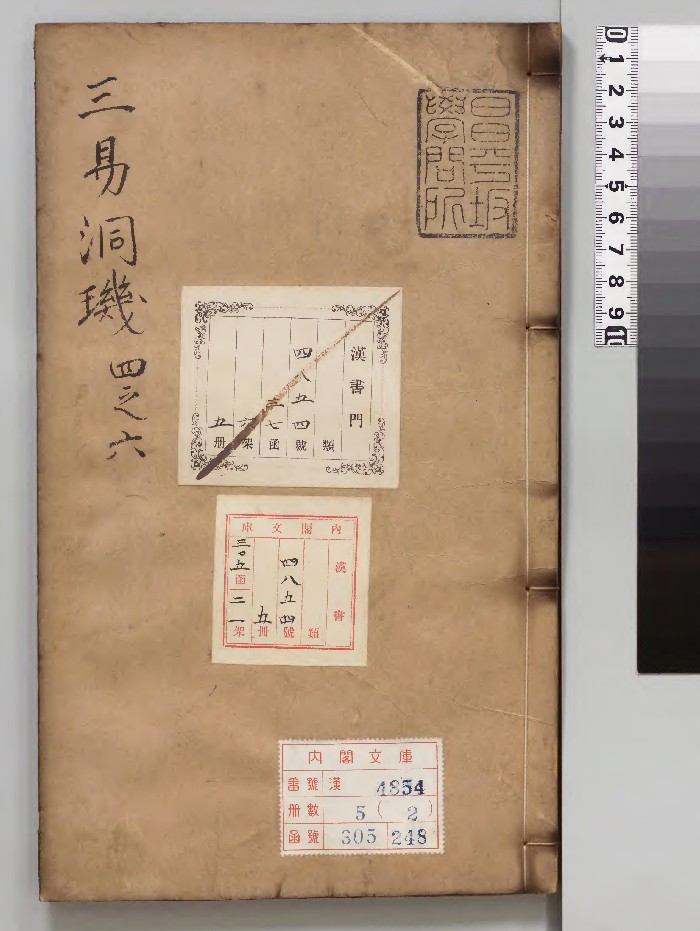 三易洞璣 四之六
昌平坂
學問所
漢書門
類
四八五四號
三七函
六架
五册
内閣文庫
漢書
類
四八五四號
五冊
三〇五函
二一架
内閣文庫
番號 漢 4854
册數 5(2)
函號 305 248
0 1 2 3 4 5 6 7 8 9 10